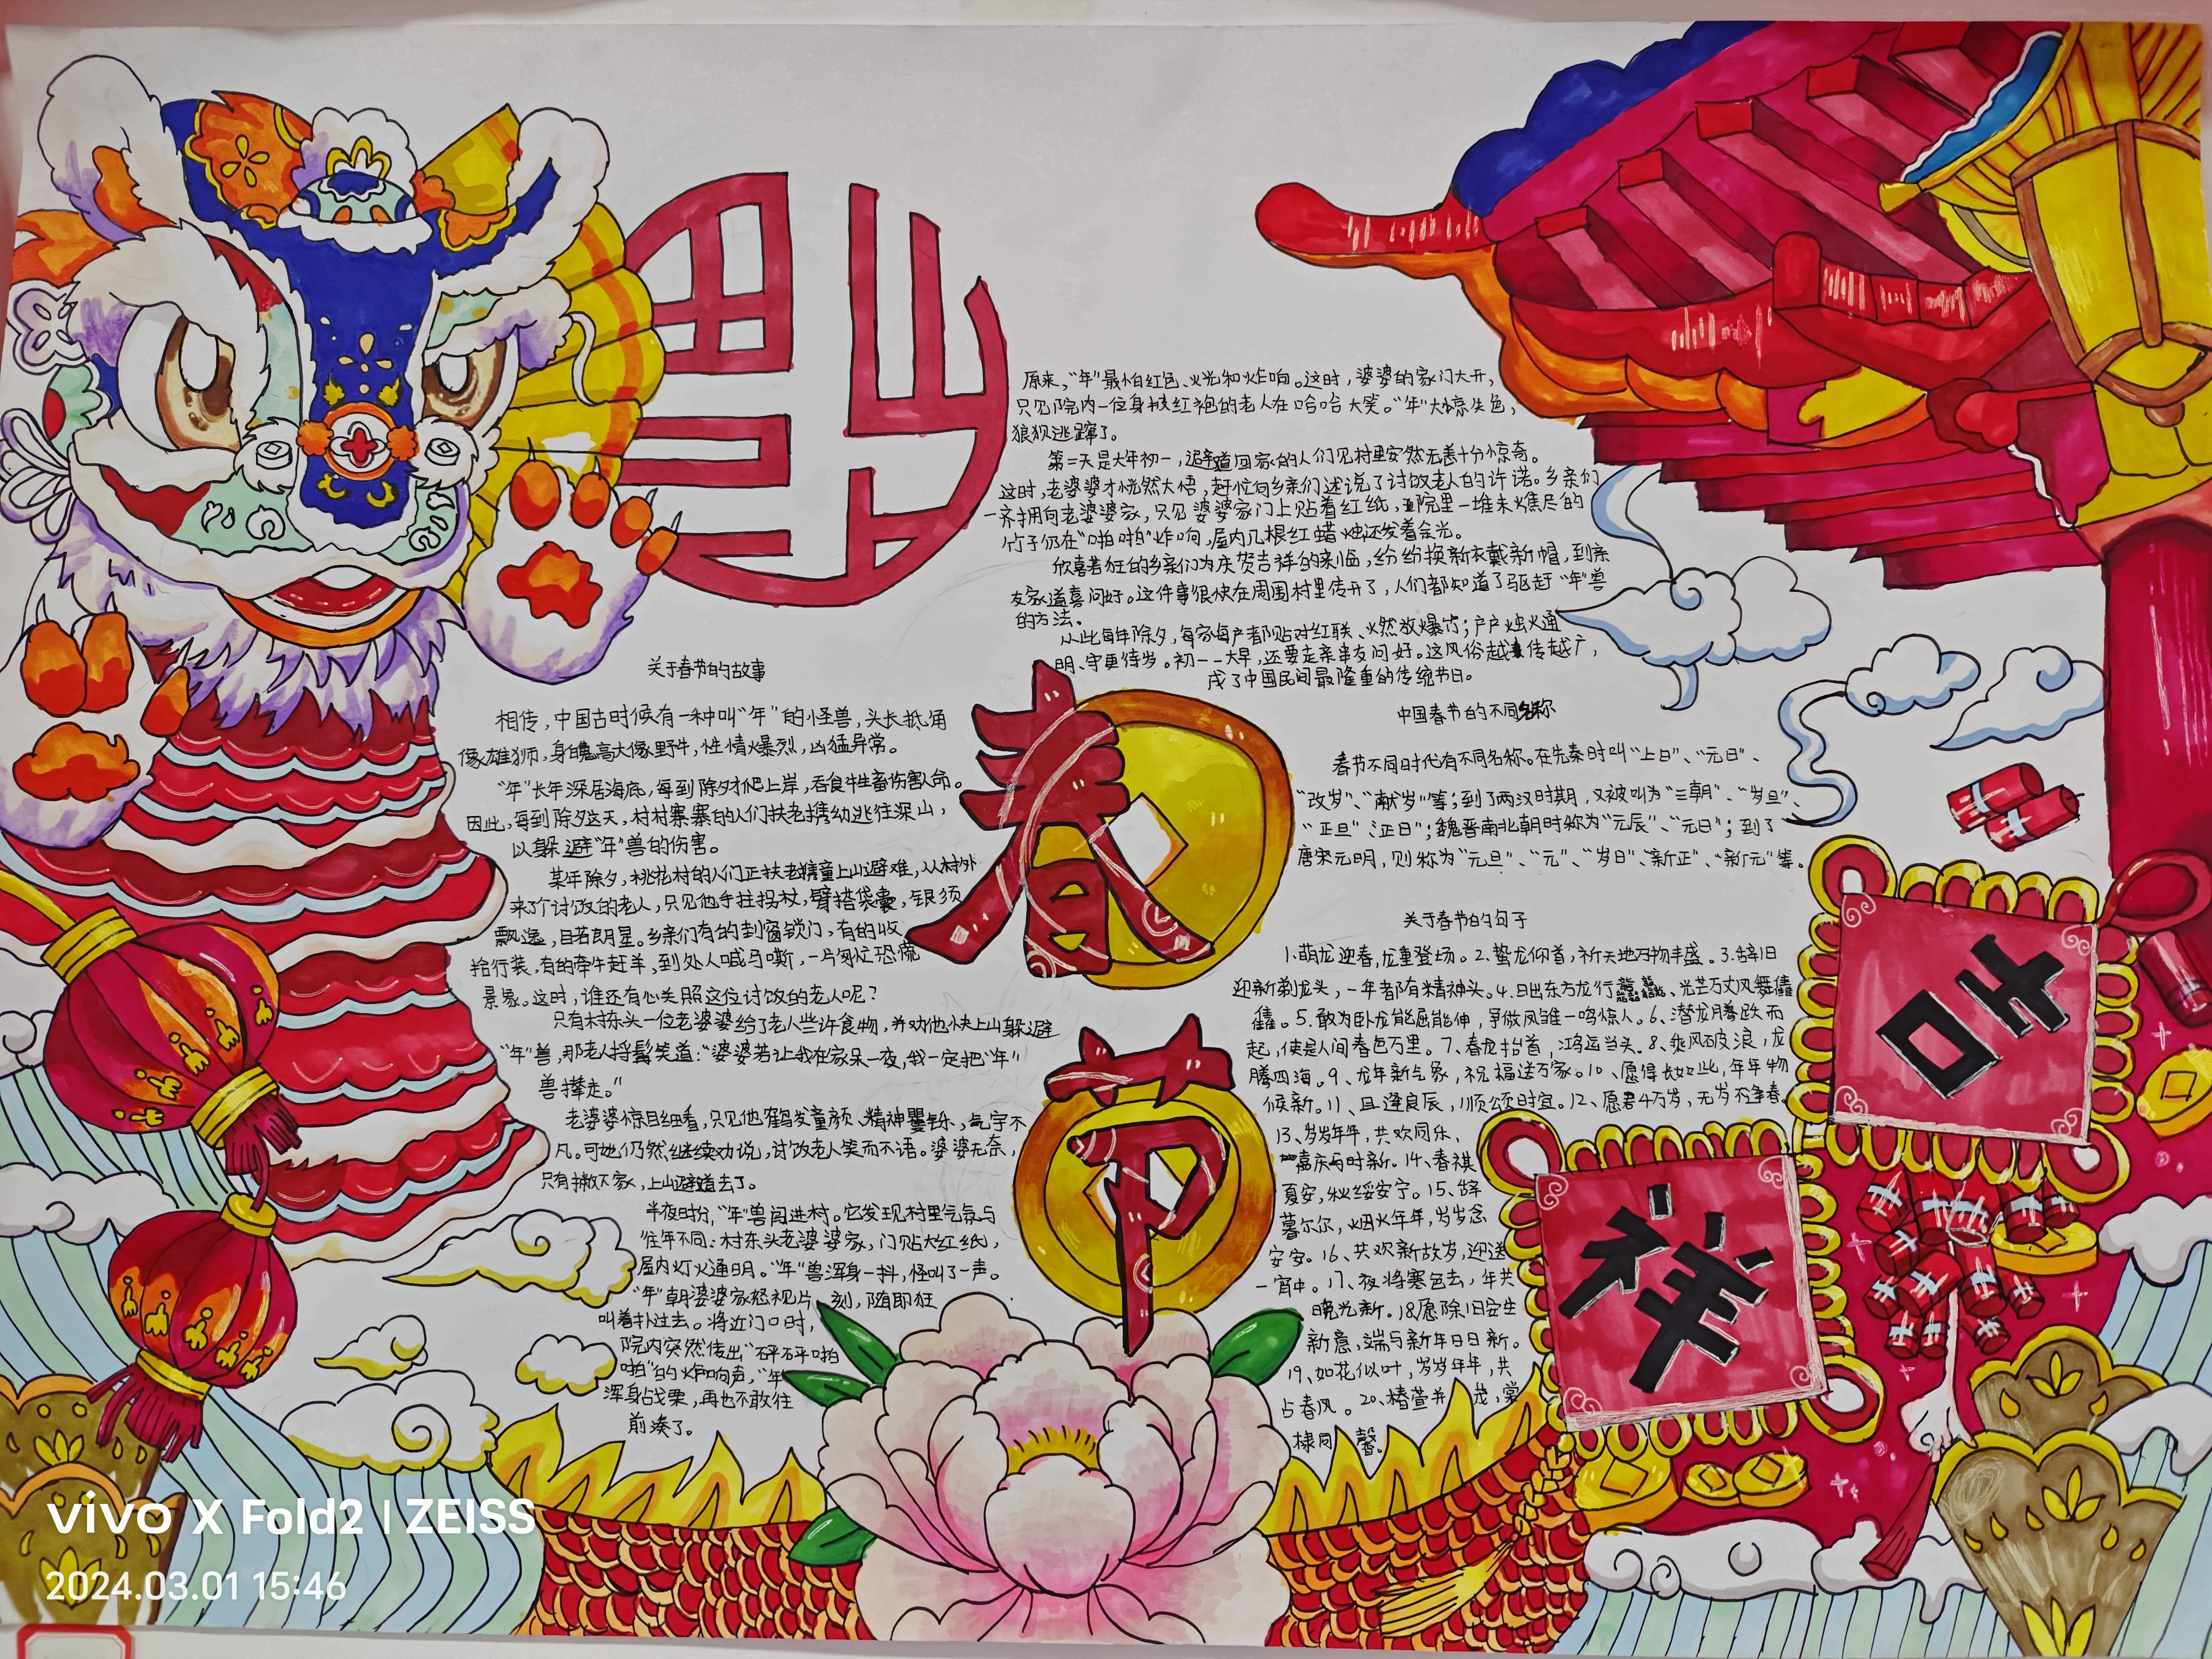 关于春节的故事
相传，中国古时候有一种叫“年”的怪兽，头长抵角
像雄狮，身魄高大像野牛，性情火爆烈，凶猛异常。
“年”长年深居海底，每到除夕才爬上岸，吞食牲畜伤害人命。
因此，每到除夕这天，村村寨寨的人们扶老携幼逃往深山，
以躲避“年”兽的伤害。
某年除夕，桃花村的人们正扶老携童上山避难，从村外
来了个讨饭的老人，只见他手拄拐杖，臂搭袋囊，银须
飘逸，目若朗星。乡亲们有的封窗锁门，有的收
拾行装，有的牵牛赶羊，到处人喊马嘶，一片匆忙恐慌
景象。这时，谁还有心关照这位讨饭的老人呢？
只有村东头一位老婆婆给了老人些许食物，并劝他快上山躲避
“年”兽，那老人捋髯笑道：“婆婆若让我在家呆一夜，我一定把“年”
兽撵走。”
老婆婆惊目细看，只见他鹤发童颜、精神矍铄，气宇不
凡。可她仍然继续劝说，讨饭老人笑而不语。婆婆无奈，
只有撇下家，上山避难去了。
半夜时分，“年”兽闯进村。它发现村里气氛与
往年不同：村东头老婆婆家，门贴大红纸，
屋内灯火通明。“年”兽浑身一抖，怪叫了一声。
“年”朝婆婆家怒视片刻，随即狂
叫着扑过去。将近门口时，
院内突然传出“砰砰啪
啪”的炸响声，“年”
浑身战栗，再也不敢往
前凑了。
原来，“年”最怕红色、火光和炸响。这时，婆婆的家门大开，
只见院内一位身披红袍的老人在哈哈大笑。“年”大惊失色，
狼狈逃蹿了。
第二天是大年初一，避难回家的人们见村里安然无恙十分惊奇。
这时，老婆婆才恍然大悟，赶忙向乡亲们述说了讨饭老人的许诺。乡亲们
一齐拥向老婆婆家，只见婆婆家门上贴着红纸，院里一堆未燃尽的
竹子仍在“啪啪”炸响，屋内几根红蜡烛还发着余光。
欣喜若狂的乡亲们为庆贺吉祥的来临，纷纷换新衣戴新帽，到亲
友家道喜问好。这件事很快在周围村里传开了，人们都知道了驱赶“年”兽
的方法。
从此每年除夕，每家每户都贴对红联、火然放爆竹；户户烛火通
明、守更待岁。初一一大早，还要走亲串友问好。这风俗越来传越广，
成了中国民间最隆重的传统节日。
春
节
中国春节的不同名称
春节不同时代有不同名称。在先秦时叫“上日”、“元日”、
“改岁”、“献岁”等；到了两汉时期，又被叫为“三朝”、“岁旦”、
“正旦”、“正日”；魏晋南北朝时称为“元辰”、“元日”；到了
唐宋元明，则称为“元旦”、“元”、“岁日”、“新正”、“新元”等。
关于春节的句子
1.萌龙迎春，龙重登场。2.蛰龙仰首，祈天地万物丰盛。3.辞旧
迎新剃龙头，一年都有精神头。4.日出东方龙行龘龘、光芒万丈凤舞僊
僊。5.敢为卧龙能屈能伸，争做凤雏一鸣惊人。6、潜龙腾跃而
起，便是人间春色万里。7、春龙抬首，鸿运当头。8、乘风破浪，龙
腾四海。9、龙年新气象，祝福送万家。10、愿得长如此，年年物
候新。11、且逢良辰，顺颂时宜。12、愿君千万岁，无岁不争春。
13、岁岁年年，共欢同乐，
嘉庆与时新。14、春祺
夏安，秋绥安宁。15、辞
暮尔尔，烟火年年，岁岁念
安安。16、共欢新故岁，迎送
一宵中。17、夜将寒色去，年共
晓光新。18愿除旧安生
新意，端与新年日日新。
19、如花似叶，岁岁年年，共
占春风。20、椿萱并茂，棠
棣同馨。
吉
祥
vivo X Fold2 | ZEISS
2024.03.01 15:46